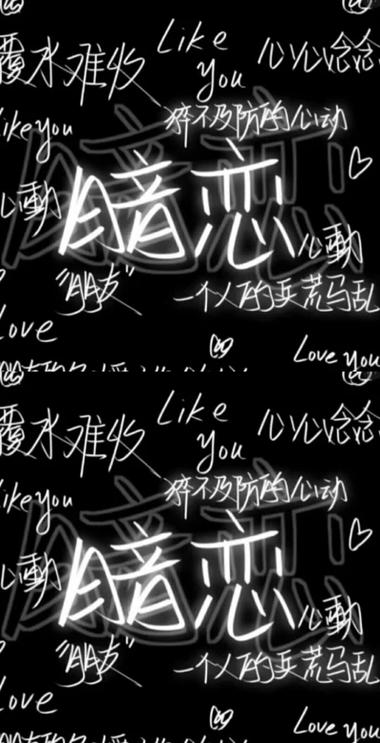 Like
you
覆水难收
心心念念
likeyou
猝不及防的心动
心動
暗恋
心動
"朋友"
一个人的兵荒马乱
Love
Love you
Like
you
覆水难收
心心念念
likeyou
猝不及防的心动
心動
暗恋
心動
"朋友"
一个人的兵荒马乱
Love
Love you